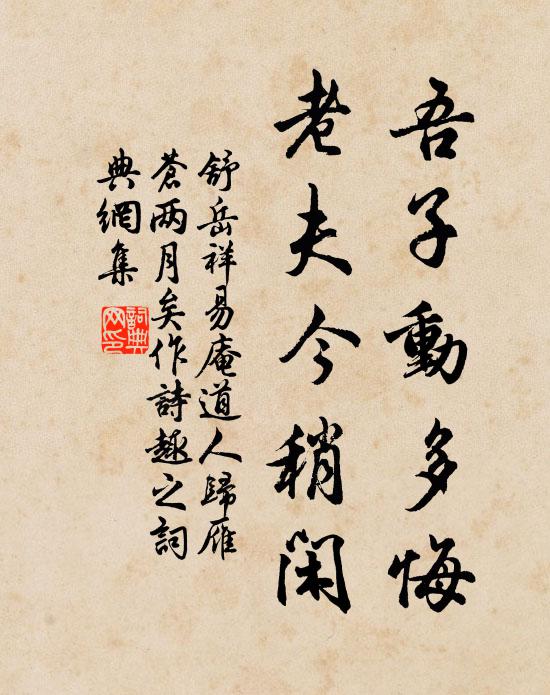 吾子動多悔
老夫今稍閑
舒岳祥易庵道人歸雁
蒼兩月矣作詩趣之詞
典網集
詞典
网印